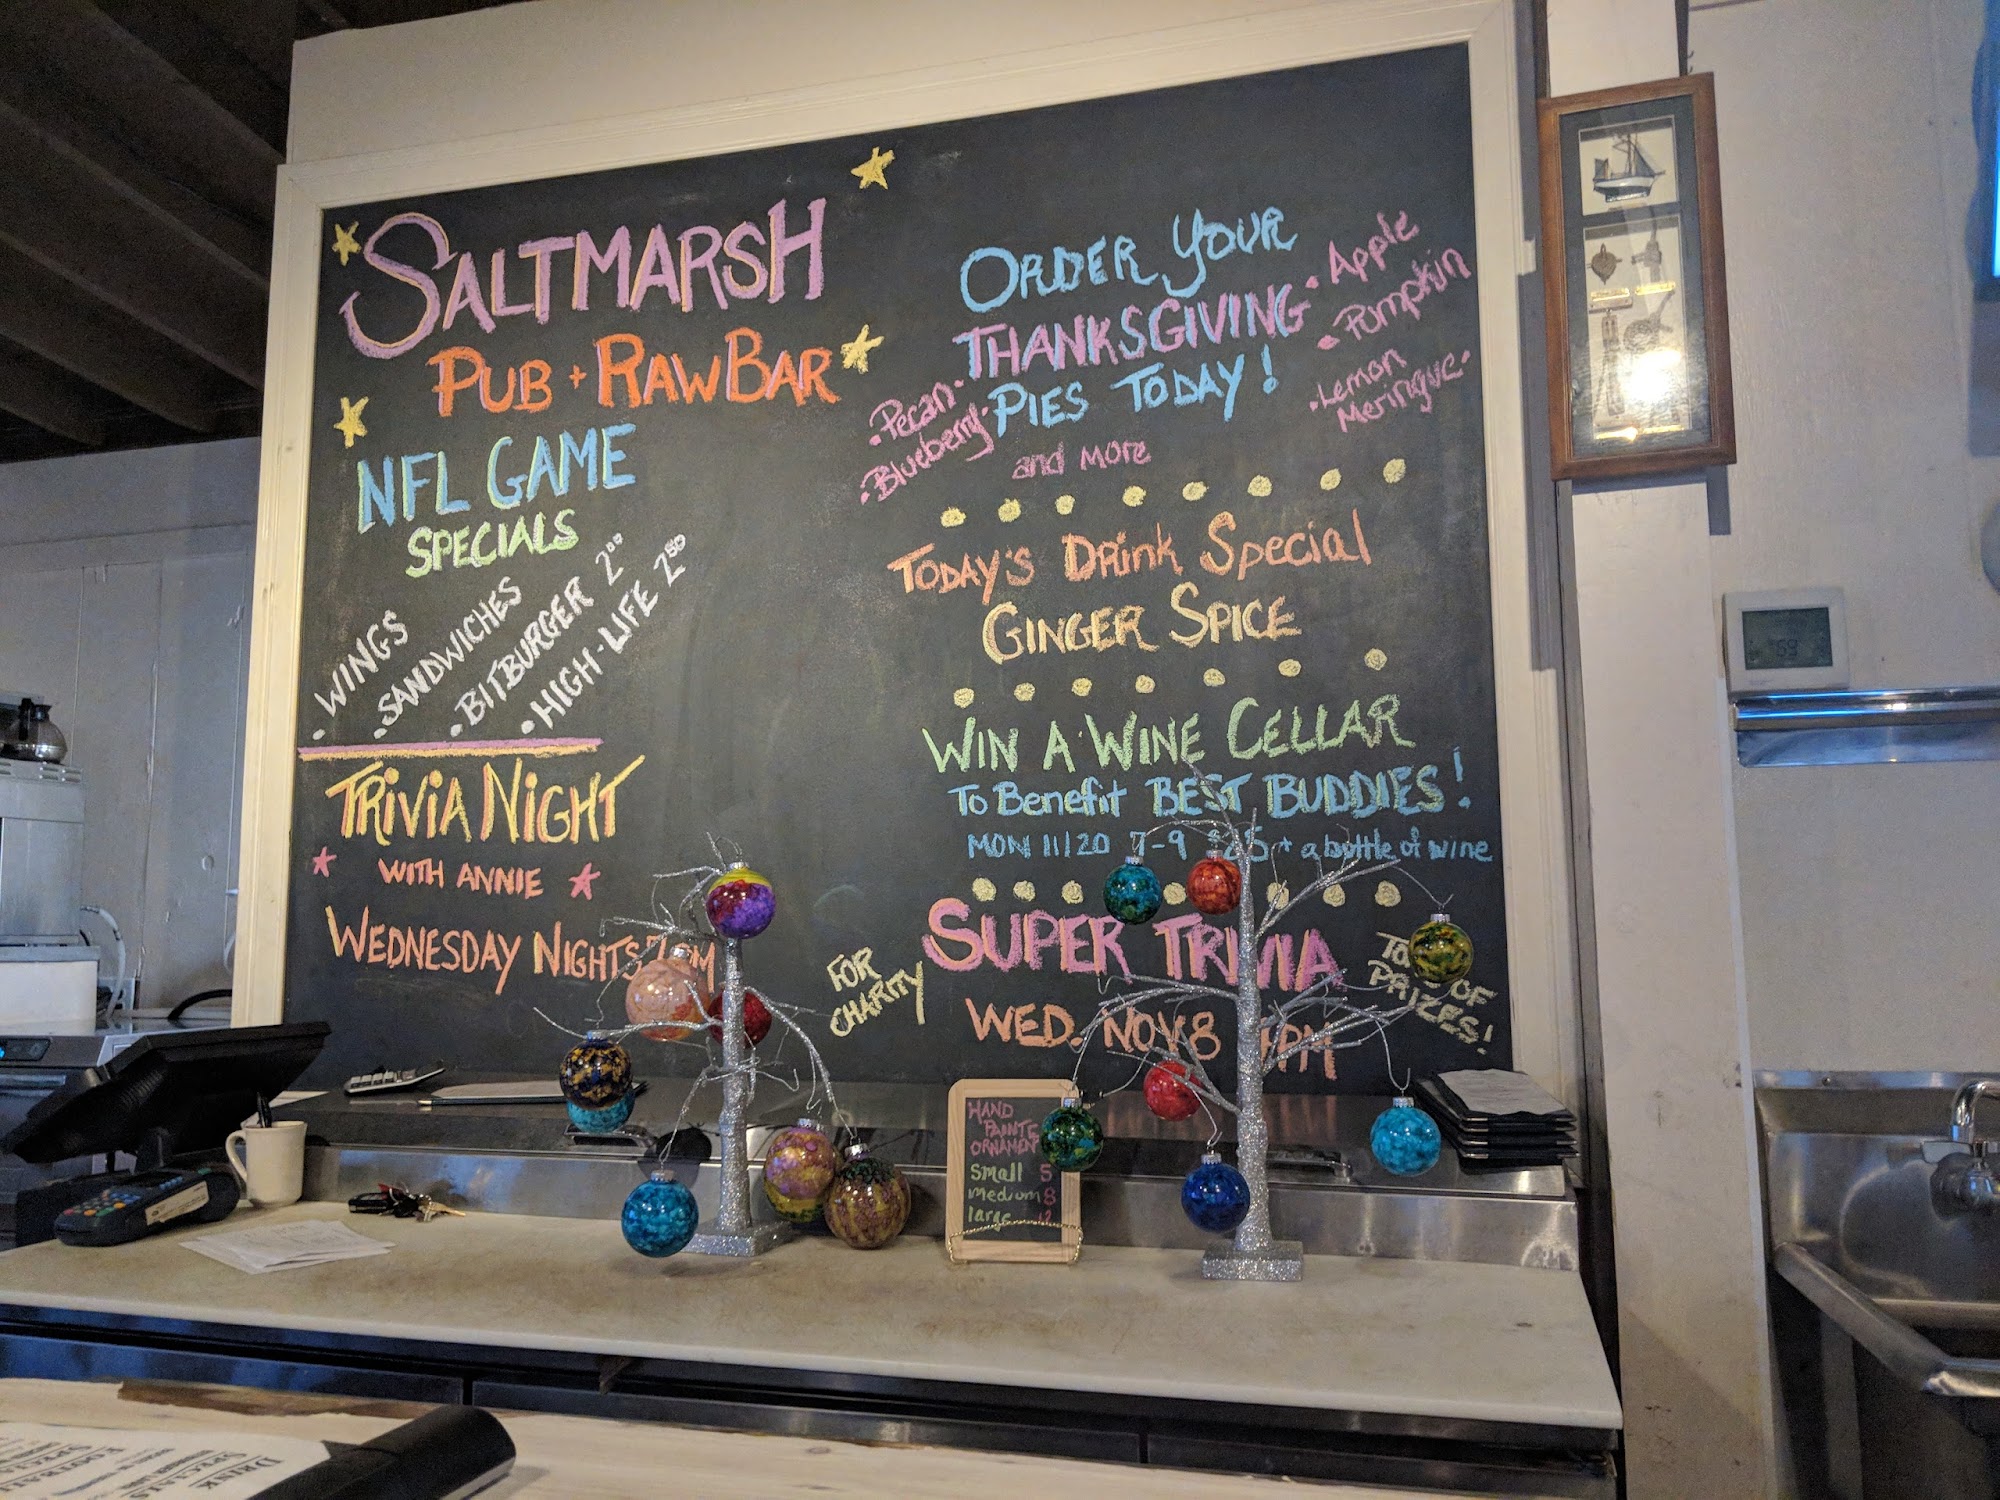 SALTMARSH
PUB + RAW BAR
NFL GAME
SPECIALS
• WINGS
• SANDWICHES
• BITBURGER 2⁰⁰
• HIGH-LIFE 2⁵⁰
TRIVIA NIGHT
WITH ANNIE
WEDNESDAY NIGHTS 7PM
ORDER YOUR
THANKSGIVING
PIES TODAY!
• Pecan •
• Blueberry •
and more
• Apple
• Pumpkin
• Lemon
Meringue •
TODAY'S DRINK SPECIAL
GINGER SPICE
WIN A WINE CELLAR
TO Benefit BEST BUDDIES!
MON 11/20 7-9 $25 + a bottle of wine
FOR
CHARITY
SUPER TRIVIA
WED. NOV 8 7PM
OF
PRIZES!
HAND
PAINTE
ORNAMENT
small 5
medium 8
large 12
69
DRINK
SPECIALS
FOOTBALL